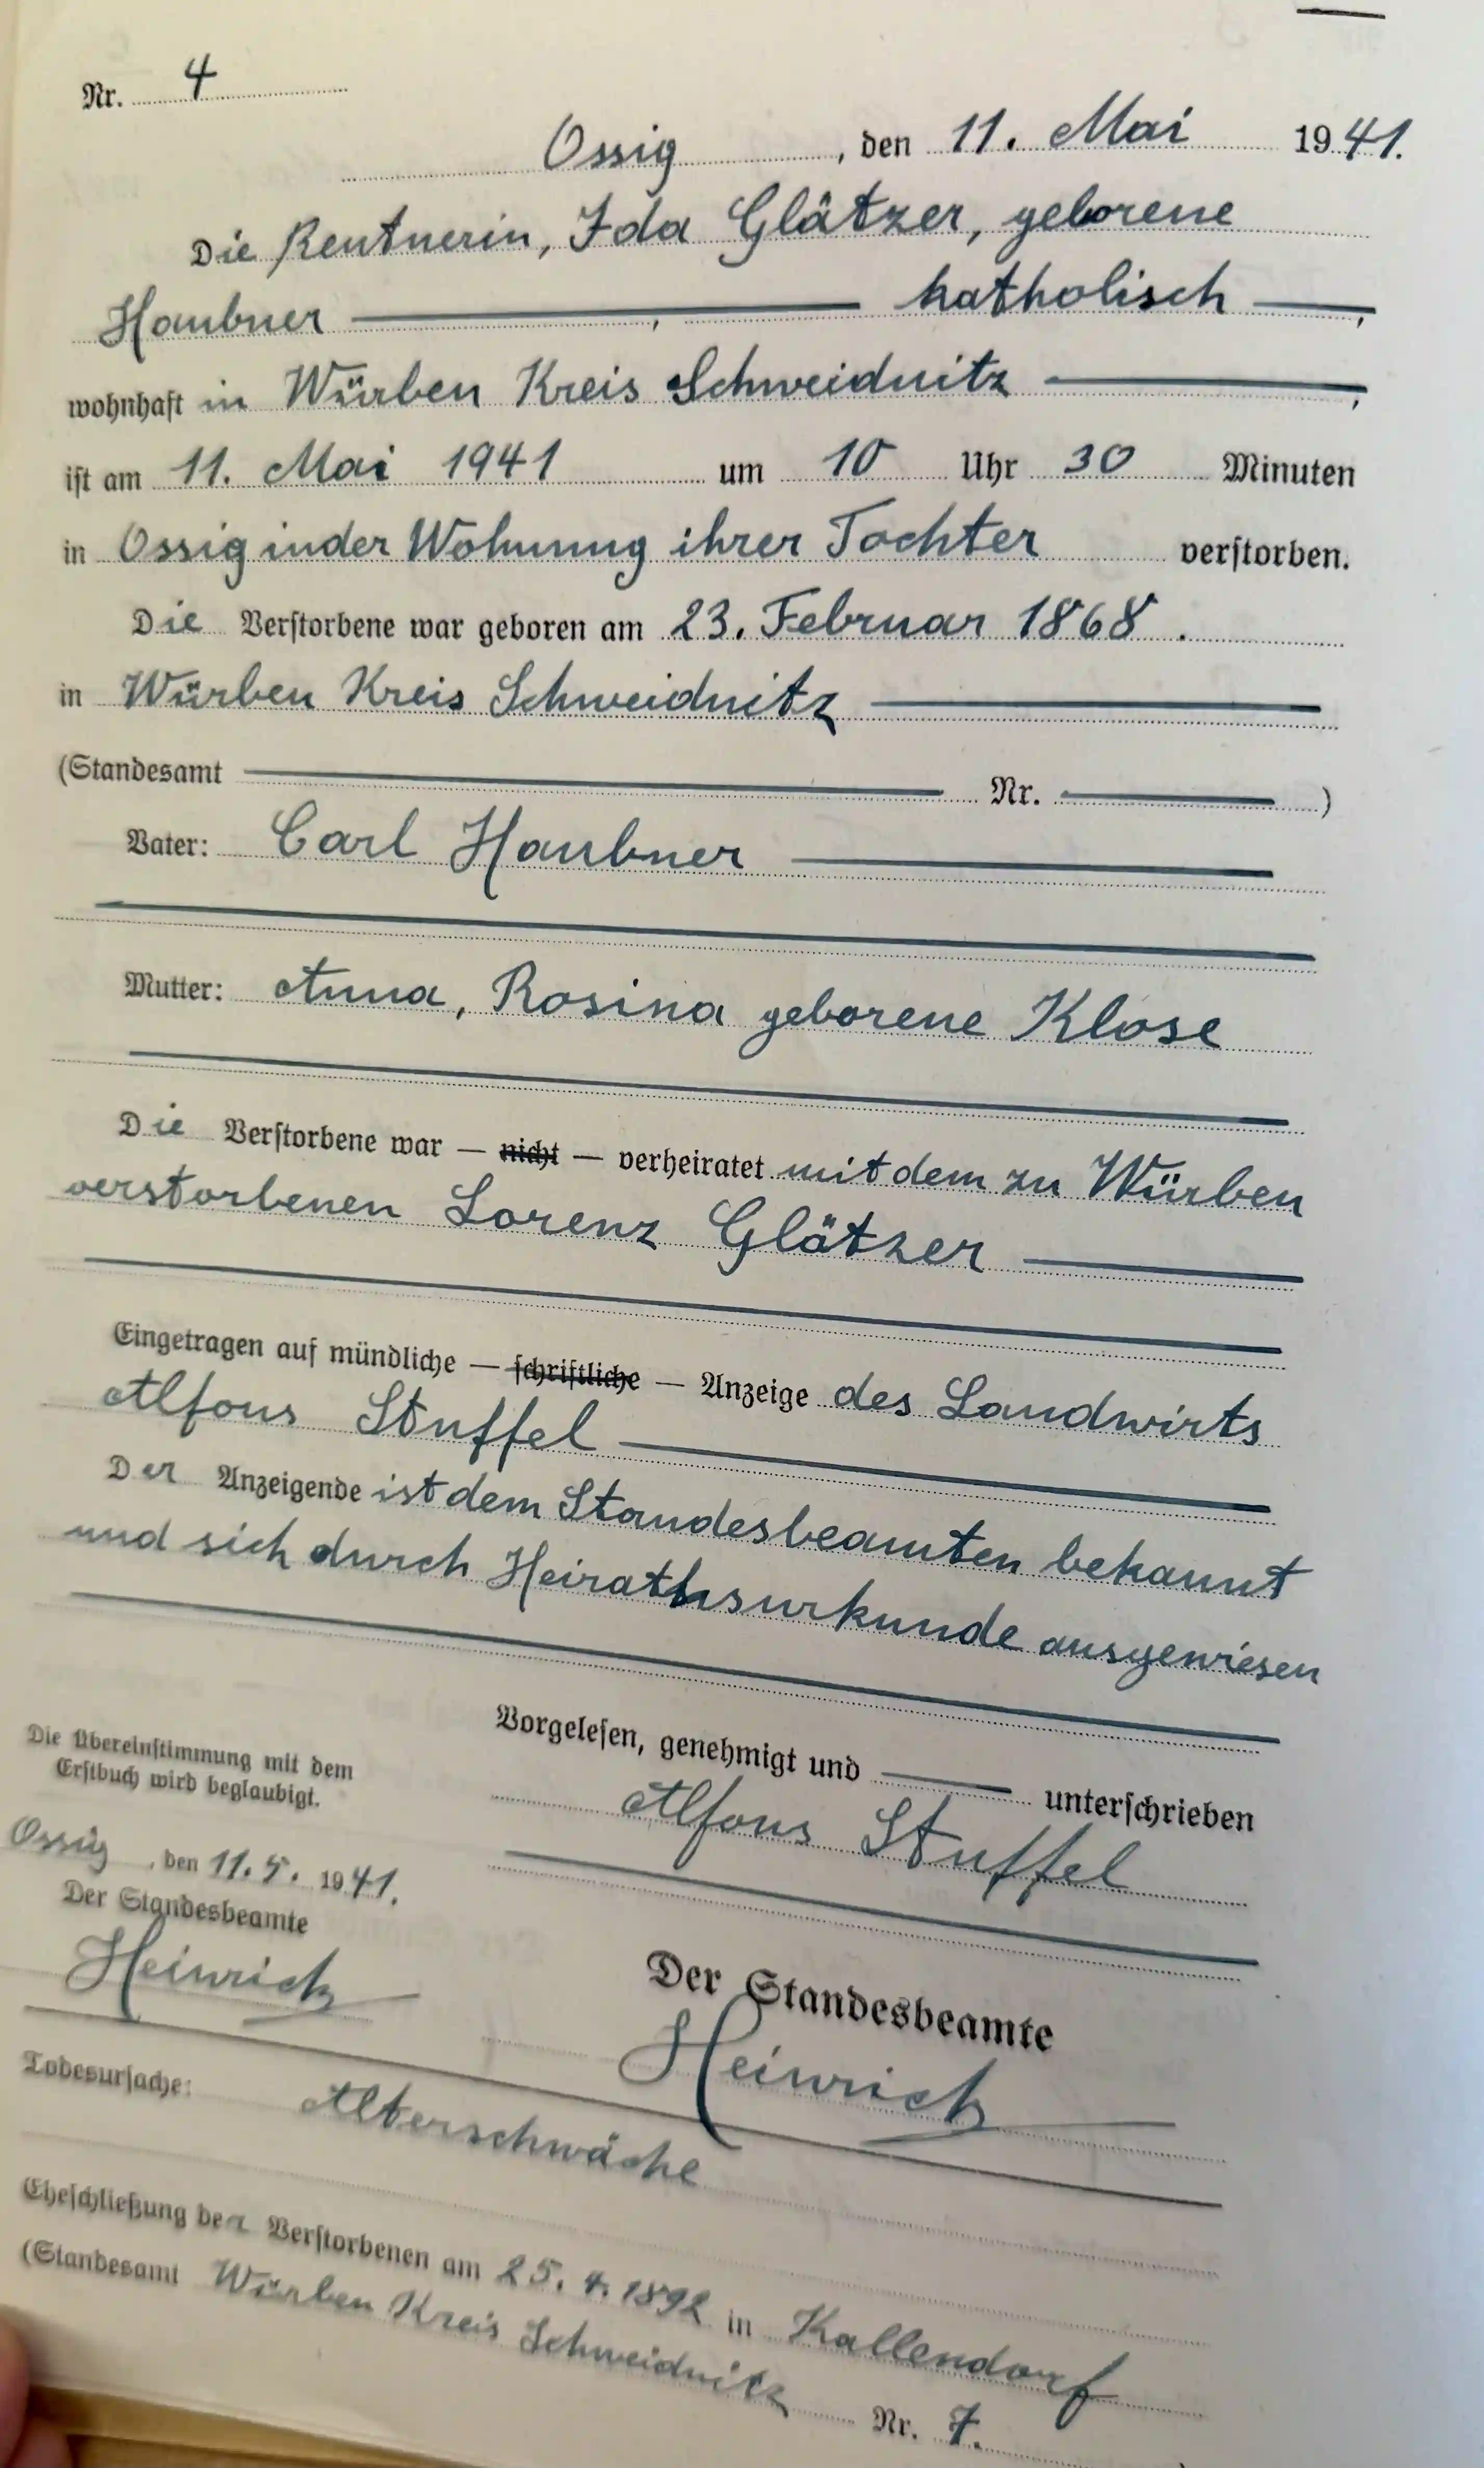 Nr. 4
Ossig, den 11. Mai 1941.
Die Rentnerin, Ida Glätzer, geborene
Haubner katholisch,
wohnhaft in Würben Kreis Schweidnitz,
ist am 11. Mai 1941 um 10 Uhr 30 Minuten
in Ossig in der Wohnung ihrer Tochter verstorben.
Die Verstorbene war geboren am 23. Februar 1868.
in Würben Kreis Schweidnitz
(Standesamt Nr. )
Vater: Carl Haubner
Mutter: Anna, Rosina geborene Klose
Die Verstorbene war — nicht — verheiratet mit dem zu Würben
verstorbenen Lorenz Glätzer
Eingetragen auf mündliche — schriftliche — Anzeige des Landwirts
Alfons Stuffel
Der Anzeigende ist dem Standesbeamten bekannt
und sich durch Heirathsurkunde ausgewiesen
Vorgelesen, genehmigt und unterschrieben
Alfons Stuffel
Die Übereinstimmung mit dem
Erstbuch wird beglaubigt.
Ossig, den 11.5.1941.
Der Standesbeamte
Heinrich
Der Standesbeamte
Heinrich
Todesursache: Alterschwäche
Eheschließung der Verstorbenen am 25.4.1892 in Kallendorf
(Standesamt Würben Kreis Schweidnitz Nr. 7.